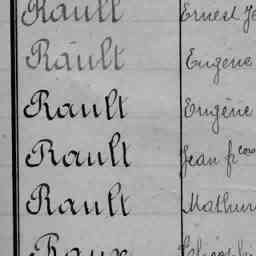 Rault Ernest
Rault Eugène
Rault Eugène
Rault Jean fçois
Rault Mathur
Raux